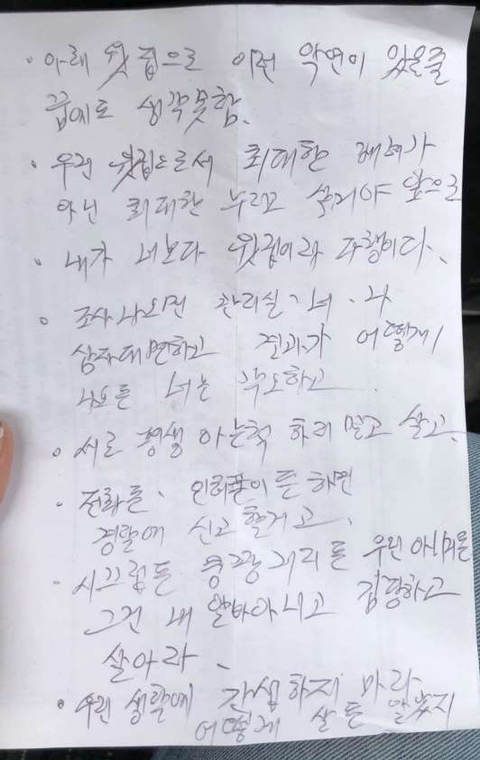 · 아래 윗집으로 이런 악연이 있을줄
꿈에도 생각못함.
· 우린 윗집으로서 최대한 배려가
아닌 최대한 누리고 살거야 앞으로
· 내가 너보다 윗집이라 다행이다.
· 조사나오면 관리실·너·나
삼자대면하고 결과가 어떻게
나오든 너는 각오하고
· 서로 평생 아는척 하지 말고 살고.
· 전화든, 인터폰이든 하면
경찰에 신고할거고,
· 시끄럽든 쿵쾅거리든 우린 아니믈
그건 내 알바아니고 감당하고
살아라.
· 우린 생활에 간섭하지 마라
어떻게 살든 알았지